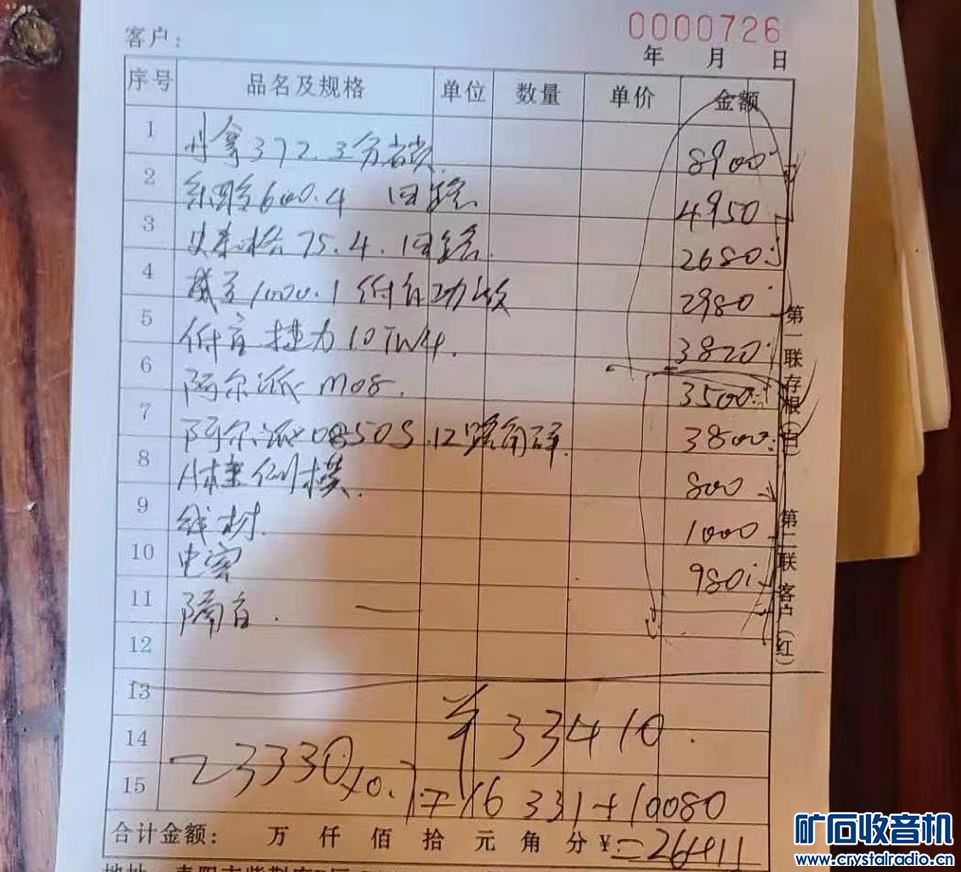 0000726
客户:
年 月 日
序号 品名及规格 单位 数量 单价 金额
1 丹拿372.3分套装 8900
2 彩雕600.4 回络 4950
3 史泰格75.4.1回络 2680
4 威子1000.1纯自功放 2980
5 低音捷力10TW4. 3820
6 阿尔派m08. 3500
7 阿尔派0850S.12路 3800
8 侧模. 800
9 线材. 1000
10 电容 980
11 隔音. —
12
13
14 ¥33410.
15 23330×0.7=16331+10080
合计金额: 万 仟 佰 拾 元 角 分 ¥: =26411
第一联存根(白)
第二联客户(红)
矿石收音机
www.crystalradio.cn